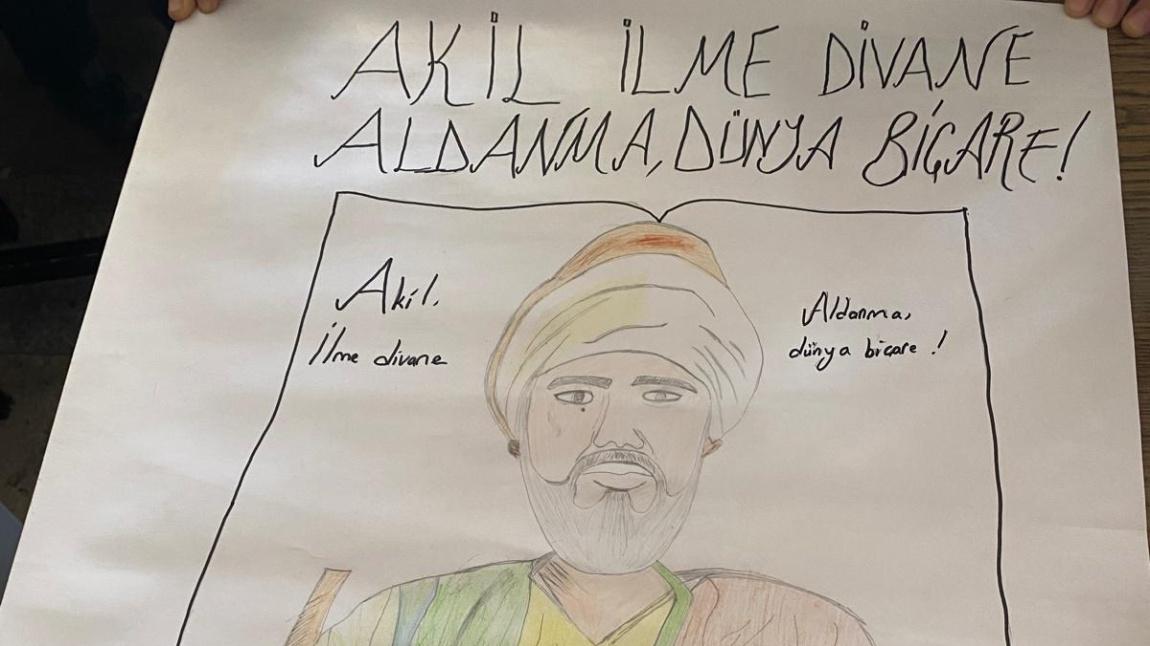 AKİL İLME DİVANE
ALDANMA, DÜNYA BİÇARE!
Akil.
İlme divane
Aldanma,
dünya biçare !